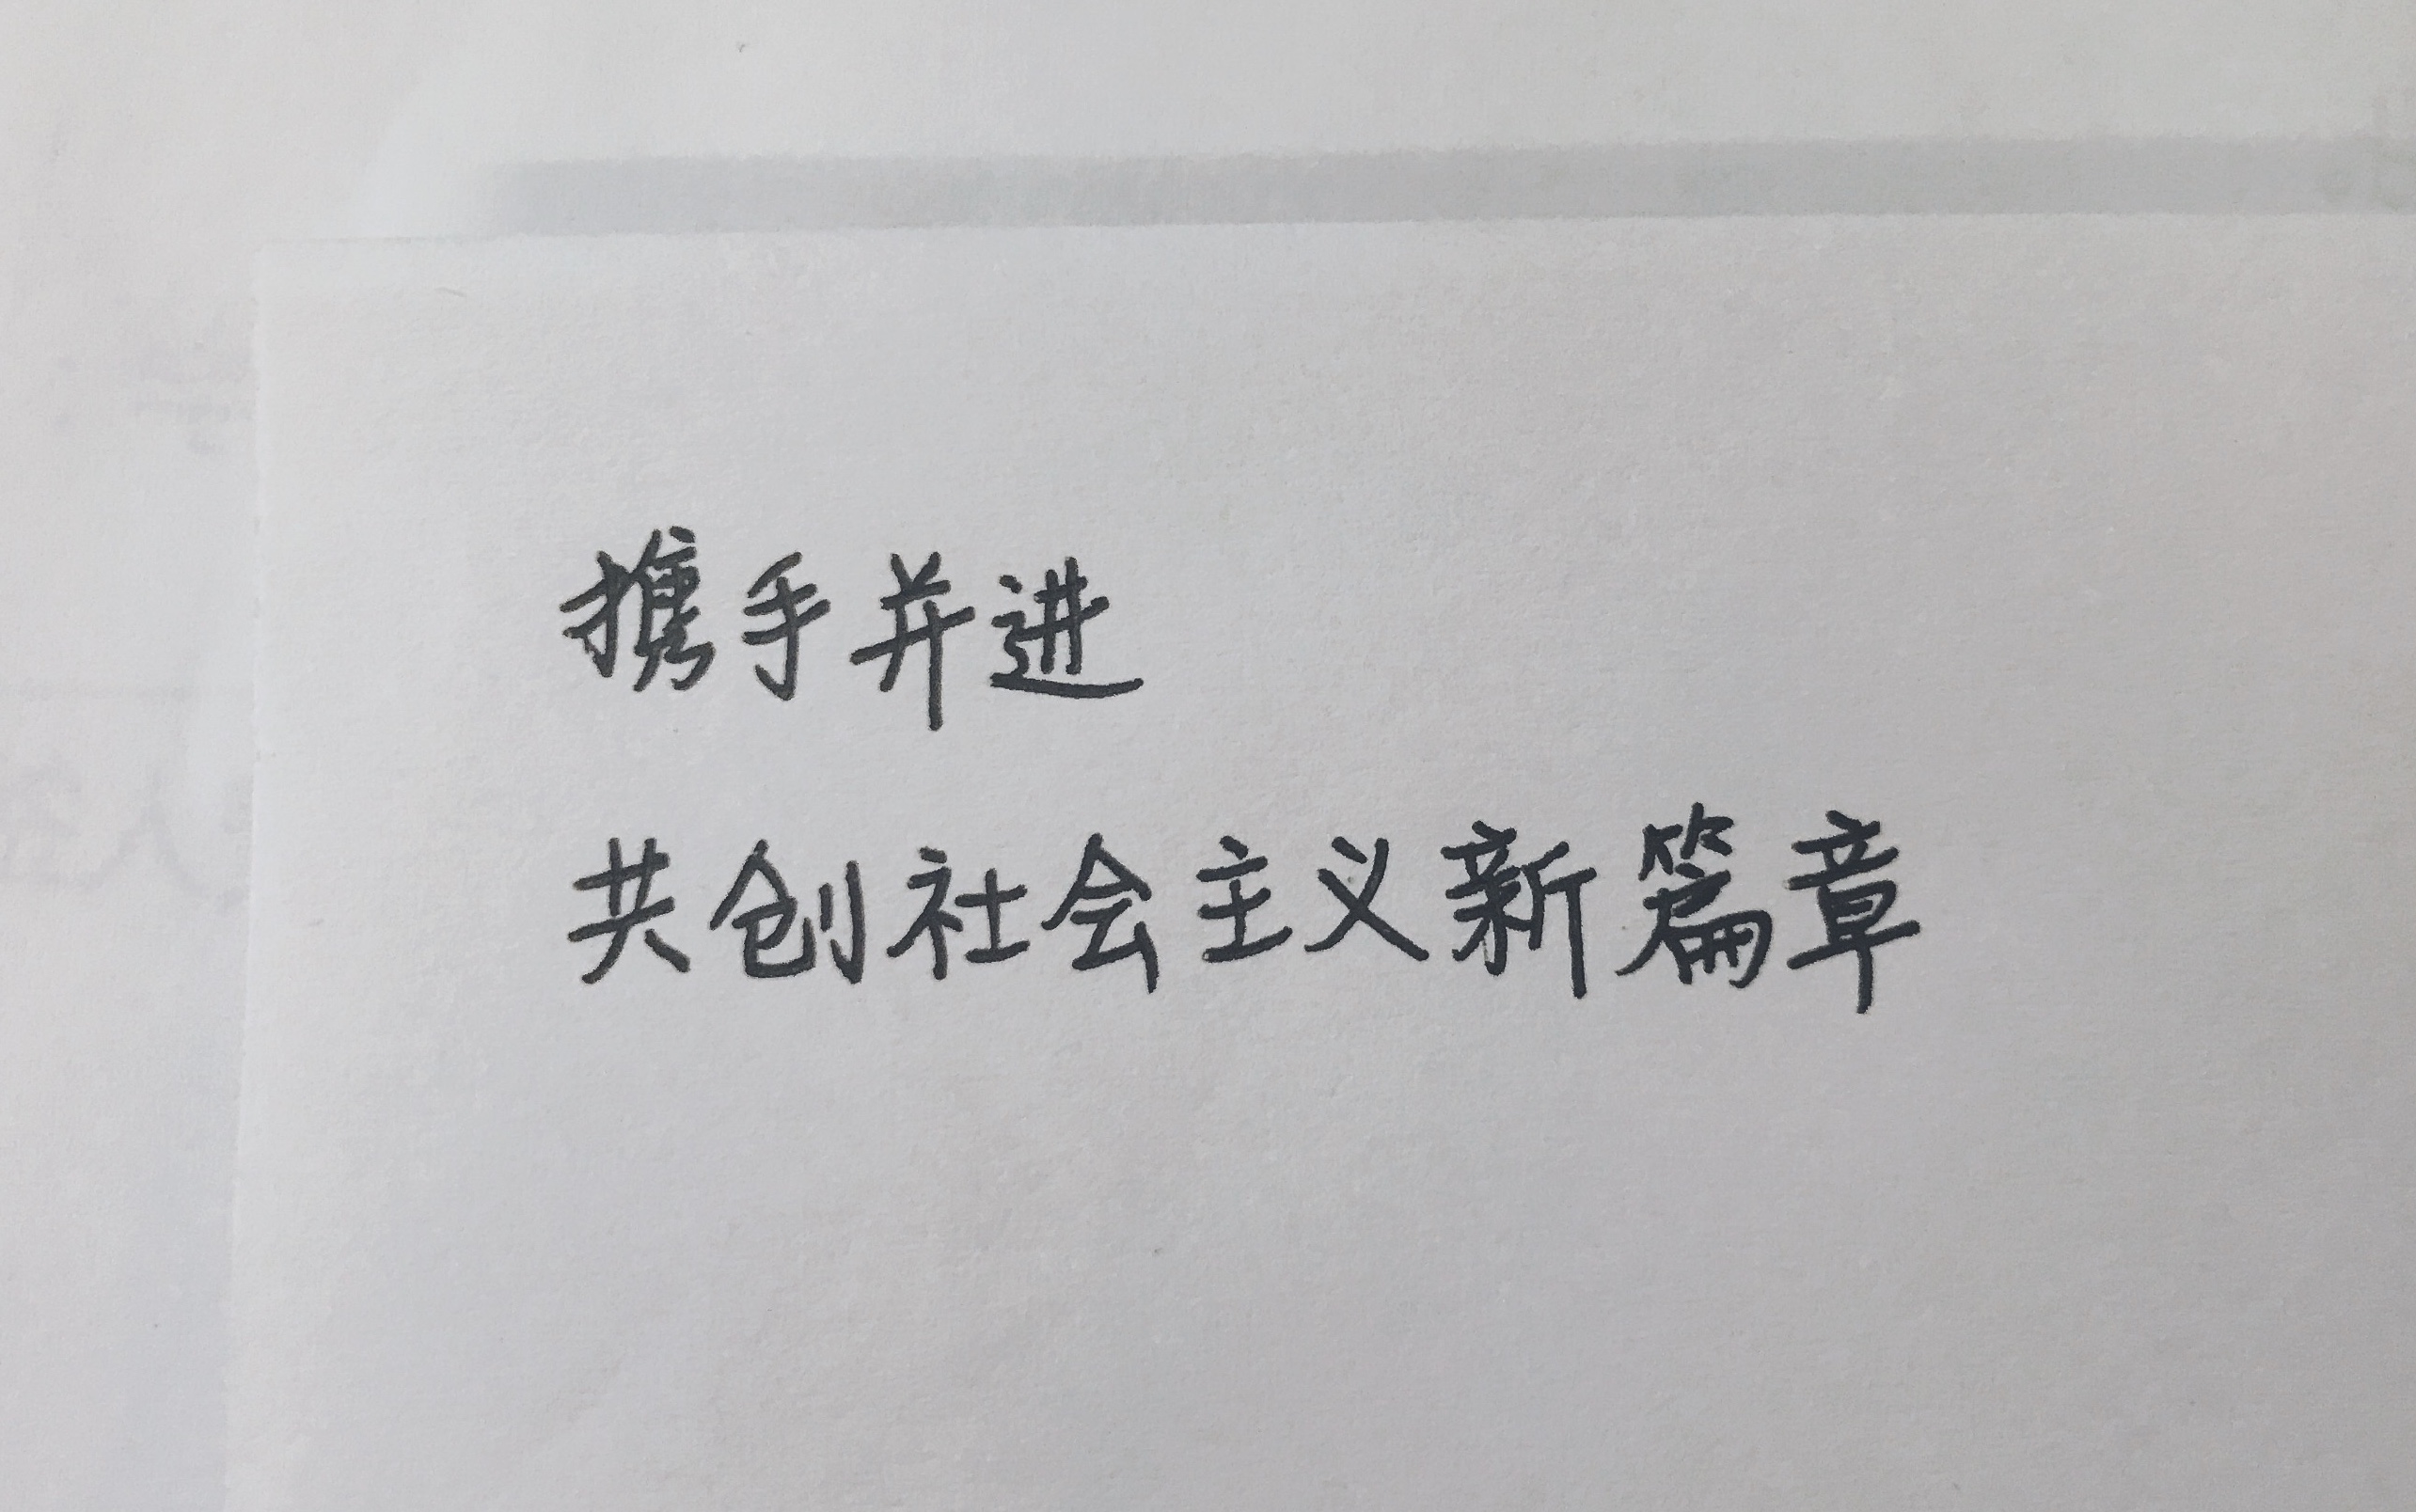 携手并进
共创社会主义新篇章